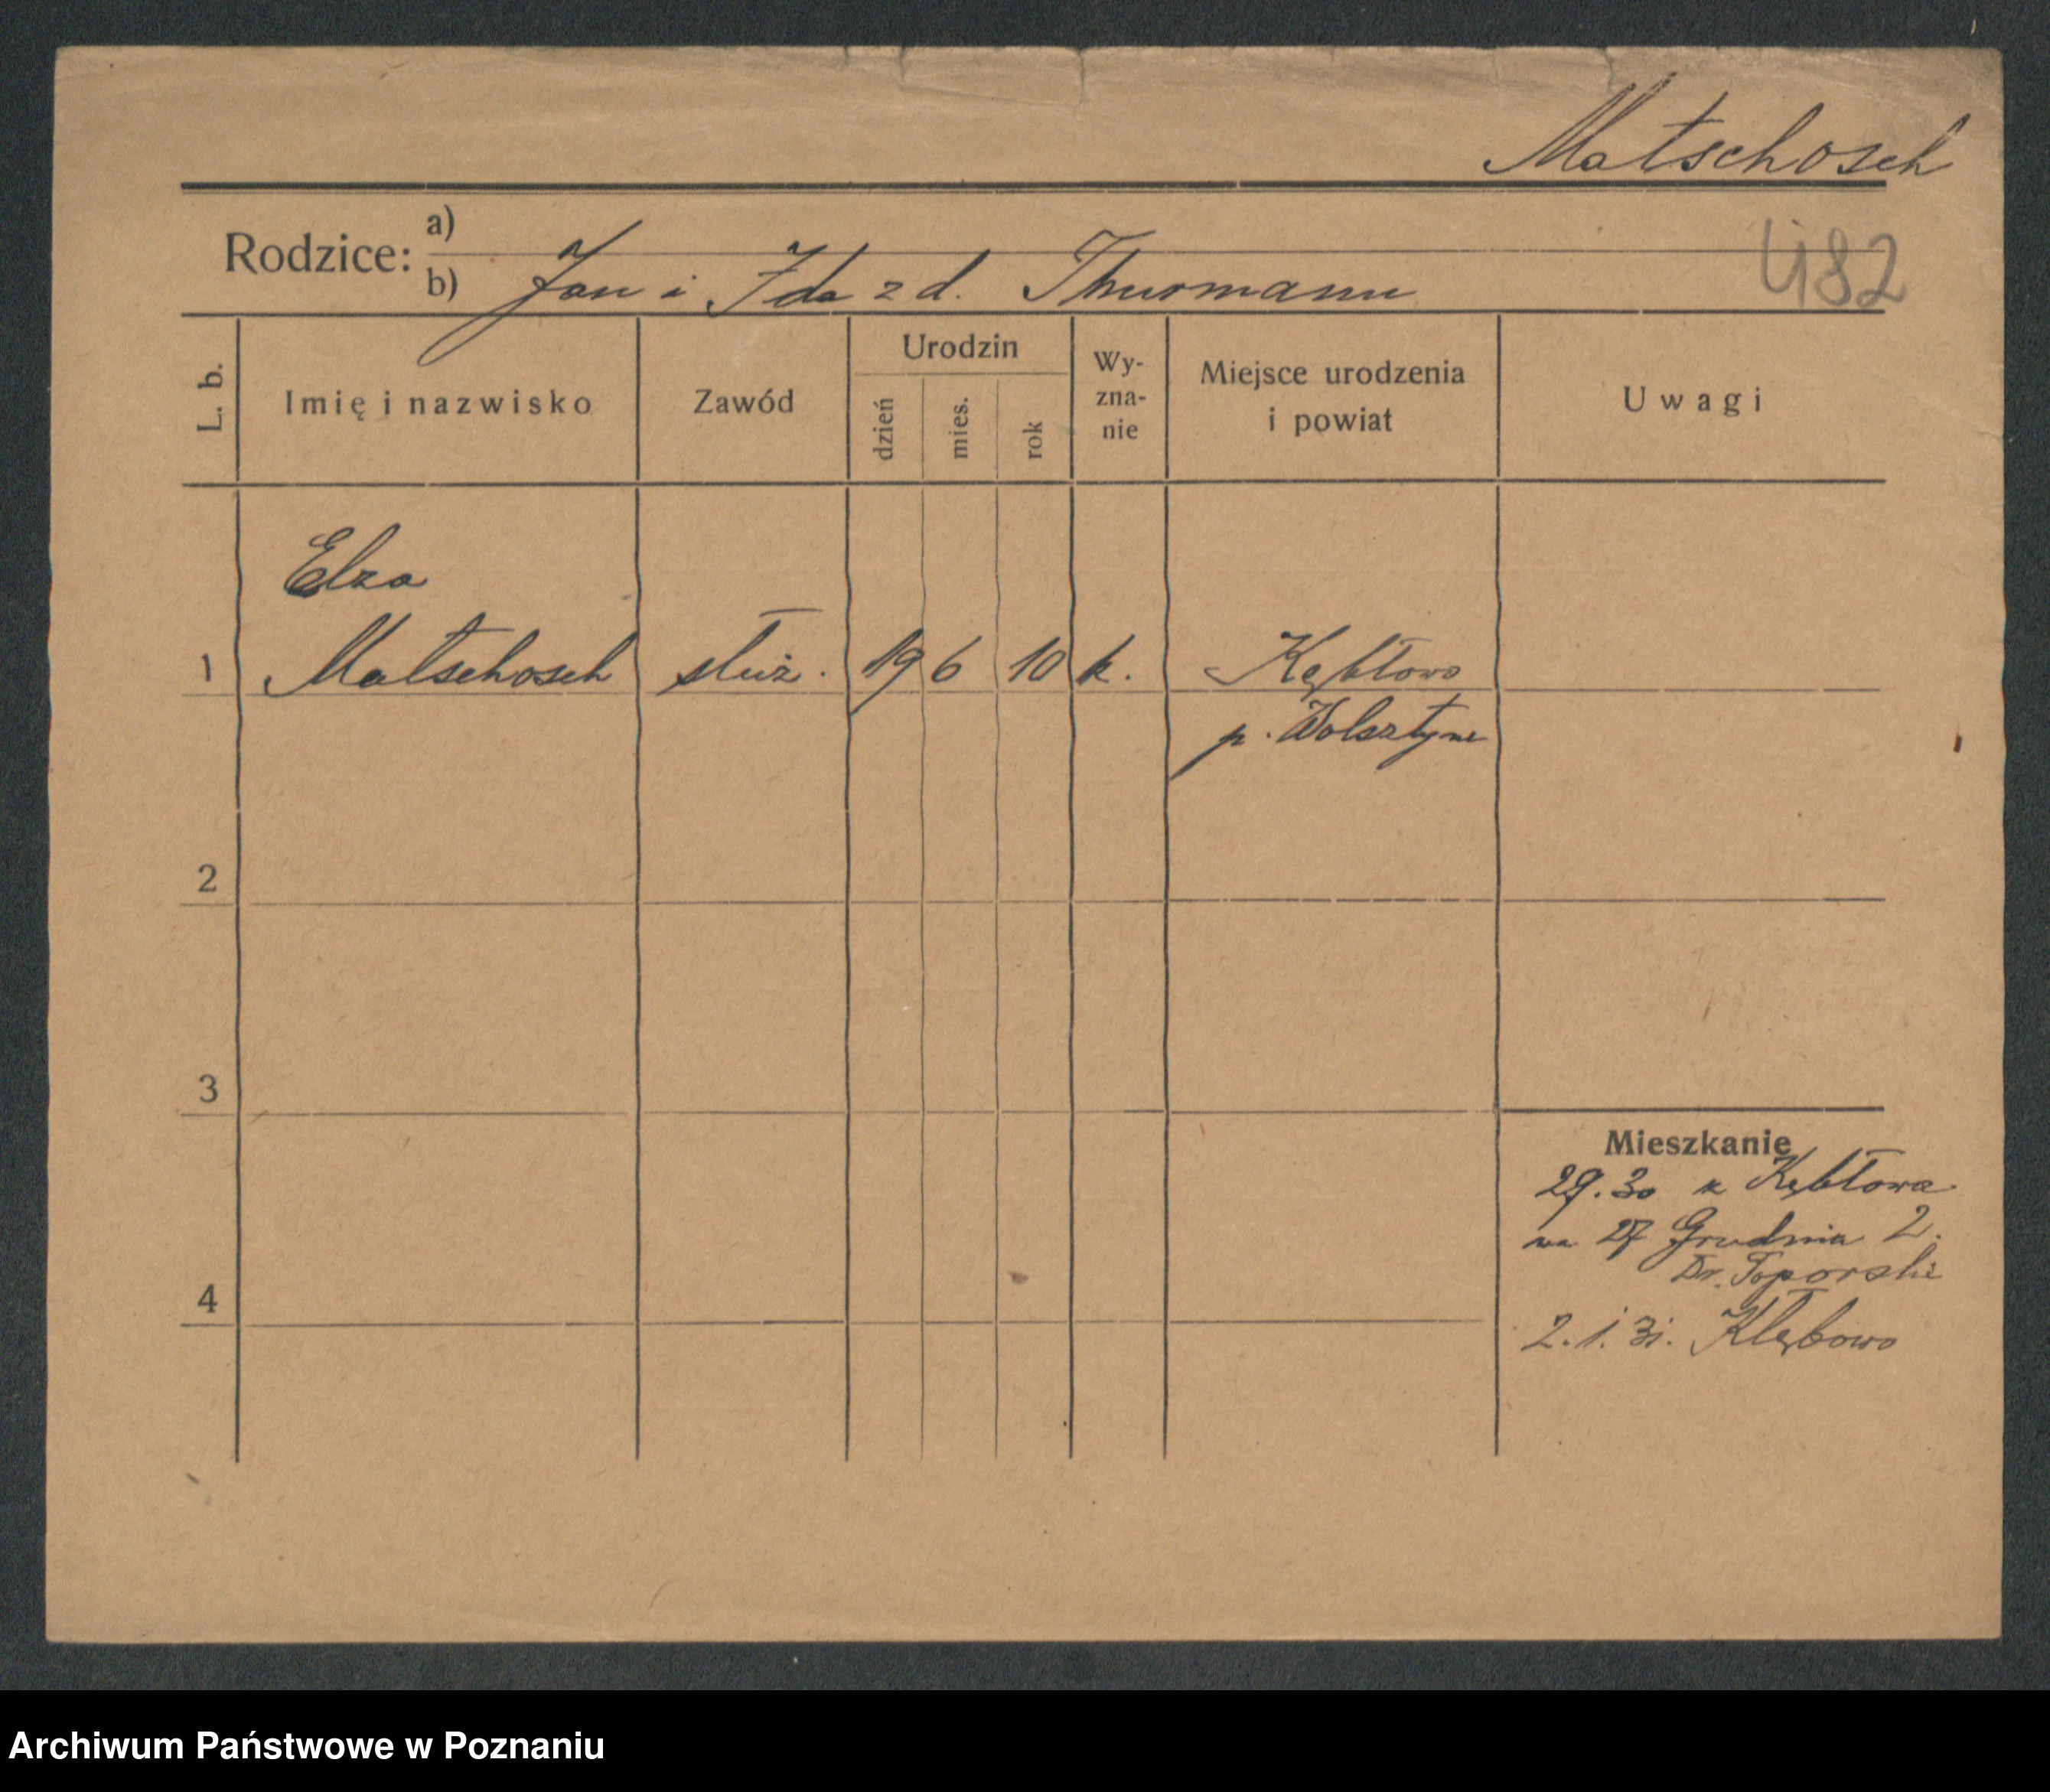 Matschosch
Rodzice: a)
b) Jan i Ida z d. Thurmann
482
L. b.
Imię i nazwisko
Zawód
Urodzin
dzień
mies.
rok
Wy-
zna-
nie
Miejsce urodzenia
i powiat
Uwagi
Elza
1 Matschosch służ. 19 6 10 k. Kębłowo
p. Wolsztyn
2
3
4
Mieszkanie
29.30 z Kębłowa
na 27 Grudnia 2.
Dr. Toporski
2.1.31. Kłębowo
Archiwum Państwowe w Poznaniu